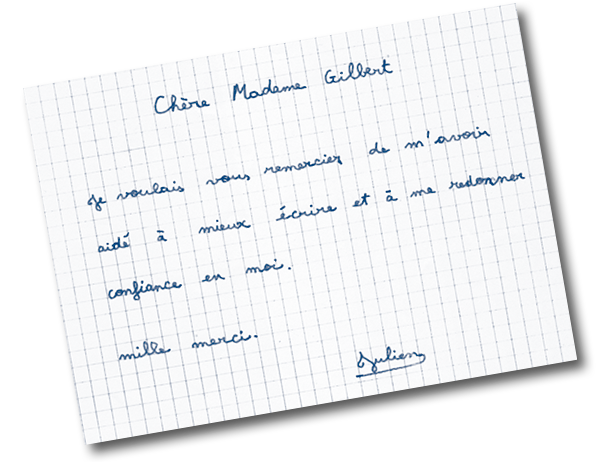 Chère Madame Gilbert
Je voulais vous remercier de m'avoir
aidé à mieux écrire et à me redonner
confiance en moi.
mille merci.
Julien